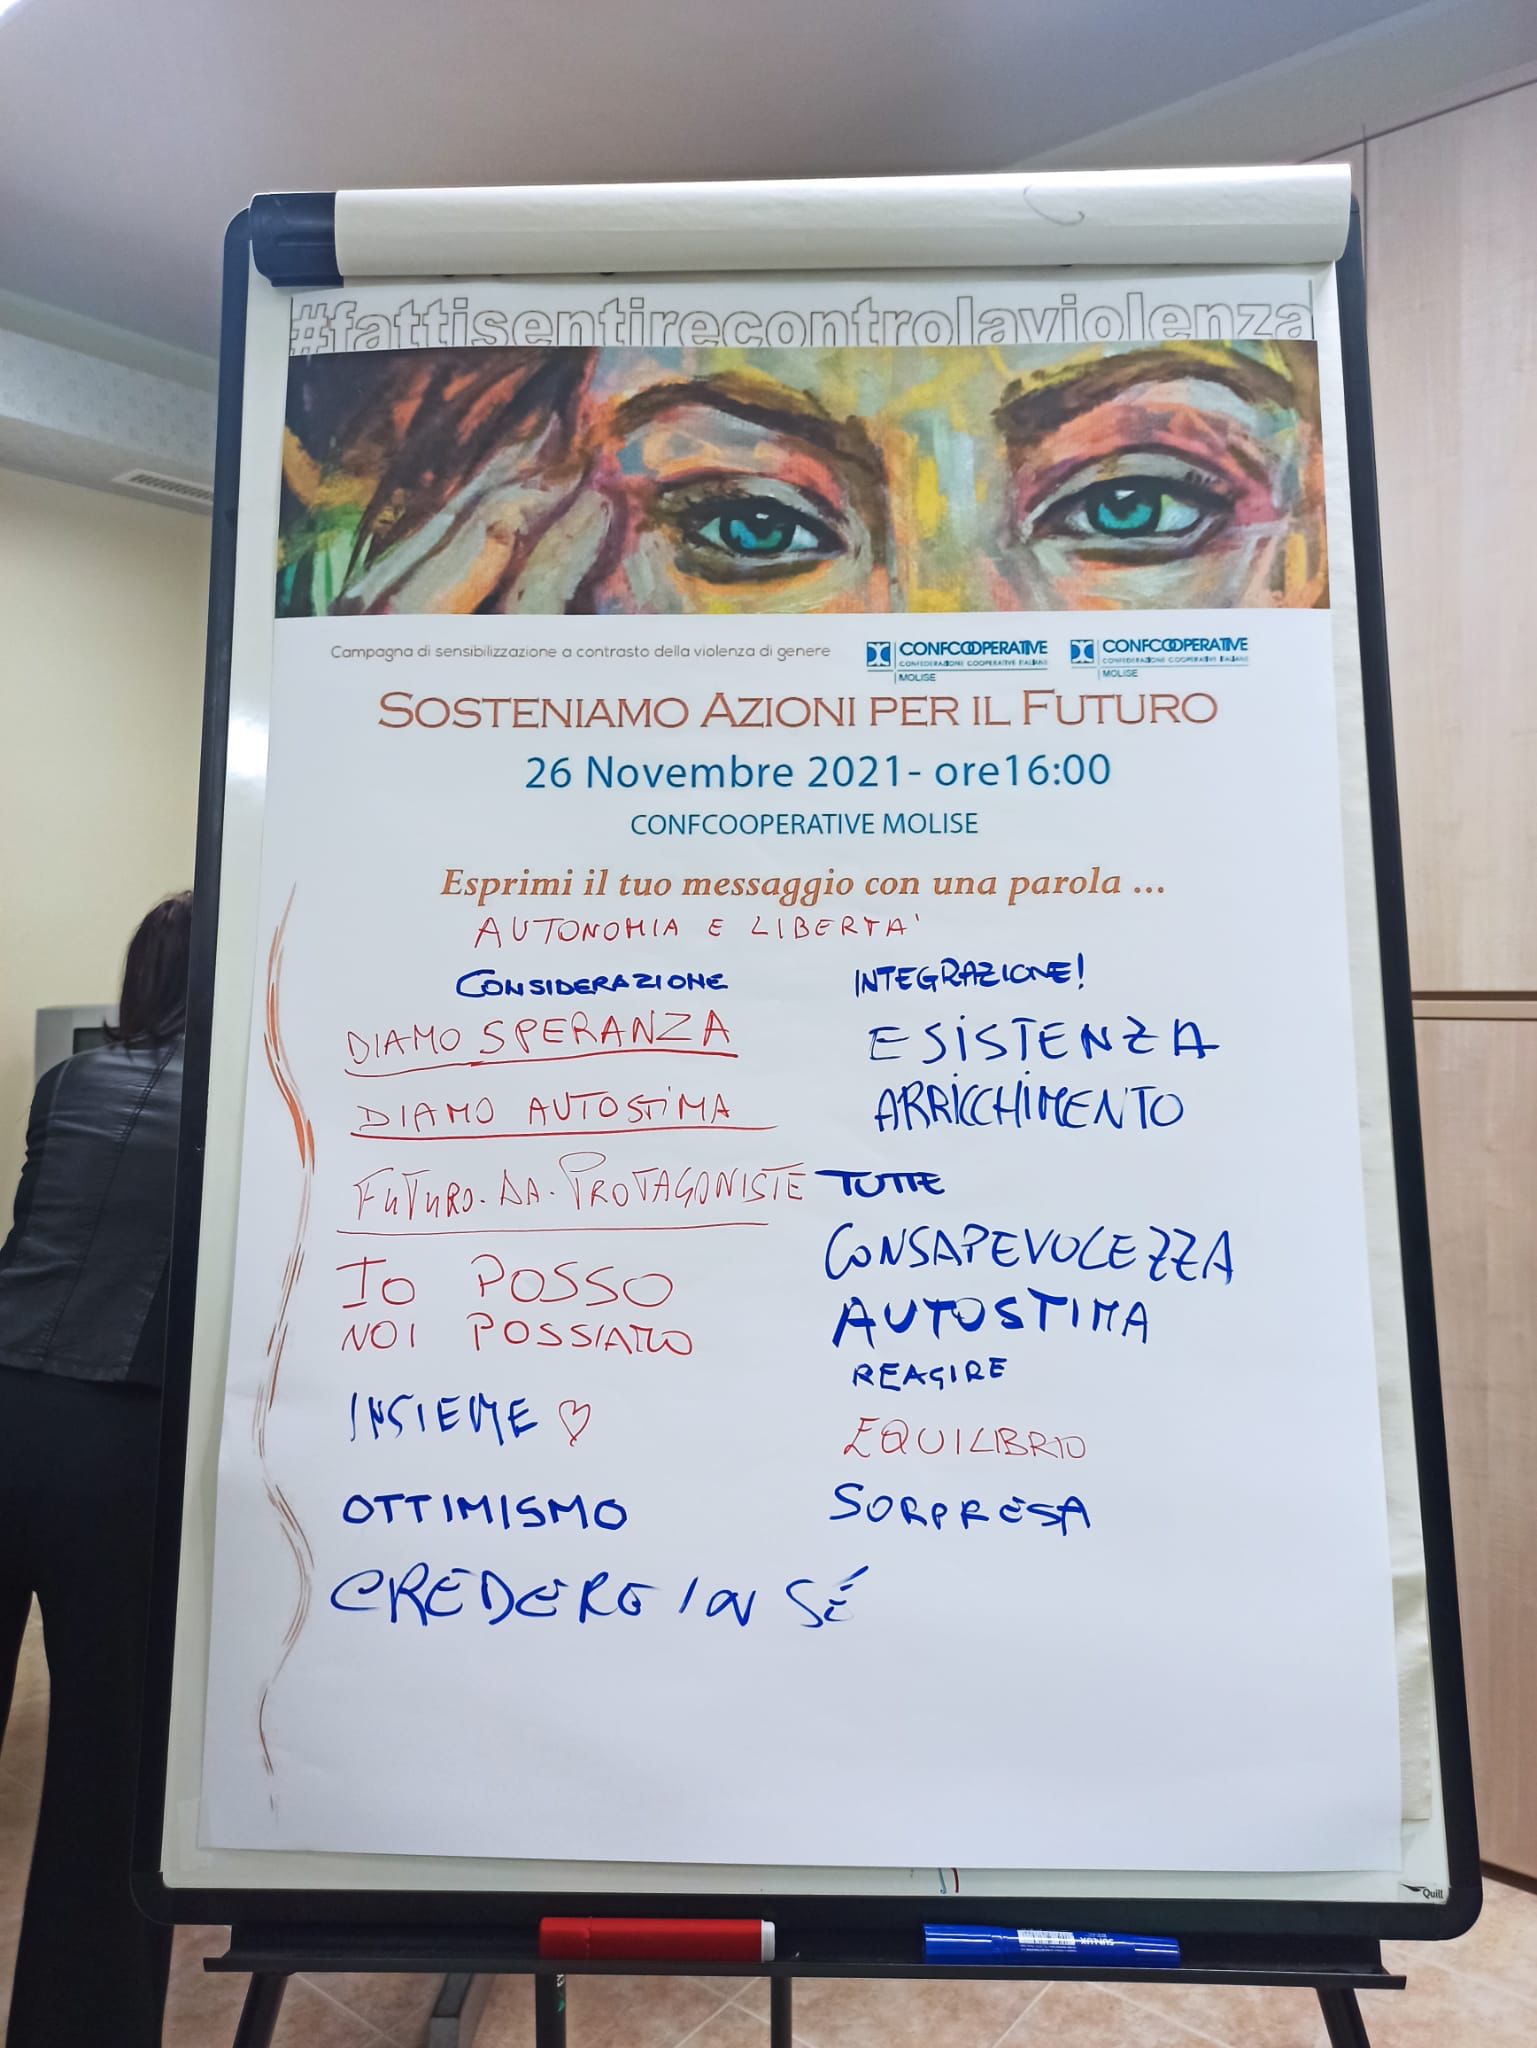 #fattisentirecontrolaviolenza
Campagna di sensibilizzazione a contrasto della violenza di genere
CONFCOOPERATIVE
CONFEDERAZIONE COOPERATIVE ITALIANE
MOLISE
CONFCOOPERATIVE
CONFEDERAZIONE COOPERATIVE ITALIANE
MOLISE
SOSTENIAMO AZIONI PER IL FUTURO
26 Novembre 2021- ore16:00
CONFCOOPERATIVE MOLISE
Esprimi il tuo messaggio con una parola ...
AUTONOMIA E LIBERTA'
CONSIDERAZIONE
DIAMO SPERANZA
DIAMO AUTOSTIMA
FUTURO. DA. PROTAGONISTE
IO POSSO
NOI POSSIAMO
INSIEME
OTTIMISMO
CREDERE IN SÉ
INTEGRAZIONE!
ESISTENZA
ARRICCHIMENTO
TUTTE
CONSAPEVOLEZZA
AUTOSTIMA
REAGIRE
EQUILIBRIO
SORPRESA
Quill